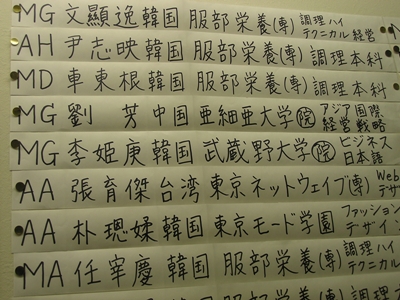 MG 文顯逸 韓国 服部栄養(専) 調理ハイテクニカル経営
AH 尹志映 韓国 服部栄養(専) 調理本科
MD 車東根 韓国 服部栄養(専) 調理本科
MG 劉 芳 中国 亜細亜大学院 アジア国際経営戦略
MG 李姫庚 韓国 武蔵野大学院 ビジネス日本語
AA 張育傑 台湾 東京ネットウェイブ(専) Webデザイ
AA 朴璁媃 韓国 東京モード学園 ファッションデザイン
MA 任宰慶 韓国 服部栄養(専) 調理ハイテクニカル